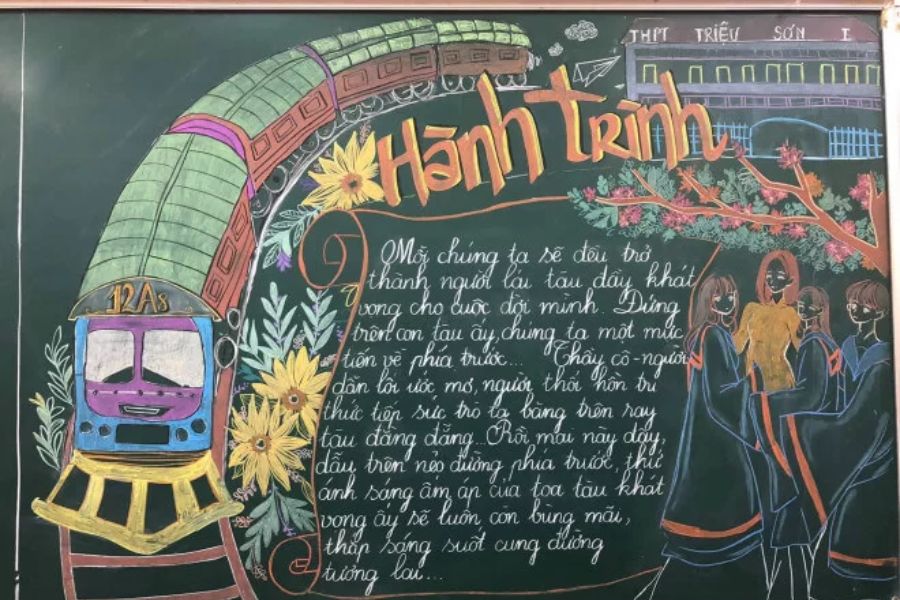 THPT TRIỆU SƠN I
Hành trình
12A8
Mỗi chúng ta sẽ đều trở
thành người lái tàu đầy khát
vọng cho cuộc đời mình. Đứng
trên con tàu ấy chúng ta một mực
tiến về phía trước... Thầy cô-người
dẫn lối ước mơ, người thổi hồn tri
thức tiếp sức trò ta băng trên ray
tàu đằng đẵng...Rồi mai này đây,
dẫu trên nẻo đường phía trước, thứ
ánh sáng ấm áp của toa tàu khát
vọng ấy sẽ luôn còn bừng mãi,
thắp sáng suốt cung đường
tương lai...